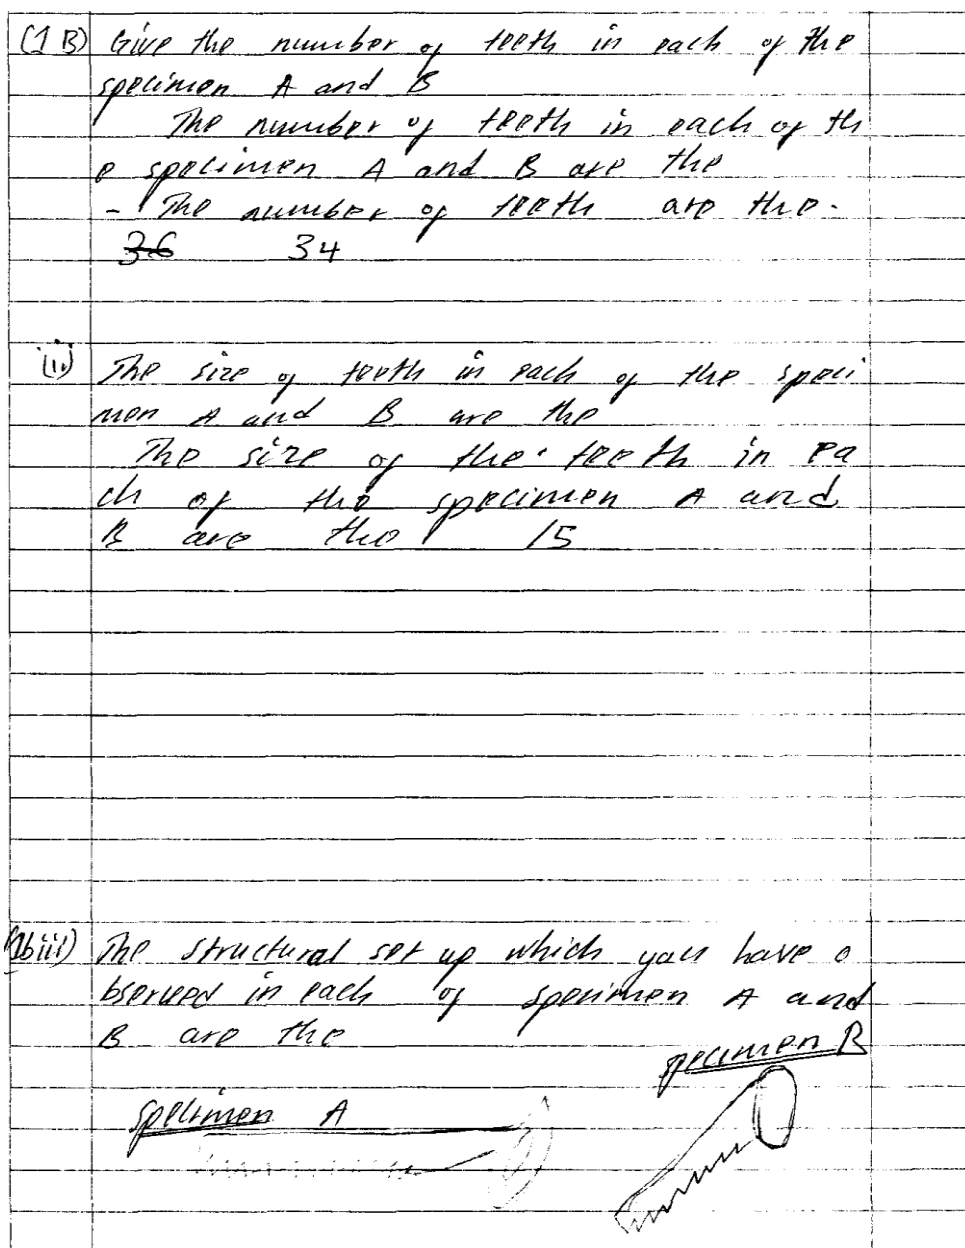 (1 B) Give the number of teeth in each of the
specimen A and B
The number of teeth in each of th
e specimen A and B are the
- The number of teeth are the.
36 34
(ii) The size of teeth in each of the speci
men A and B are the
The size of the teeth in ea
ch of the specimen A and
B are the 15
(1biii) The structural set up which you have o
bserved in each of specimen A and
B are the
specimen B
specimen A